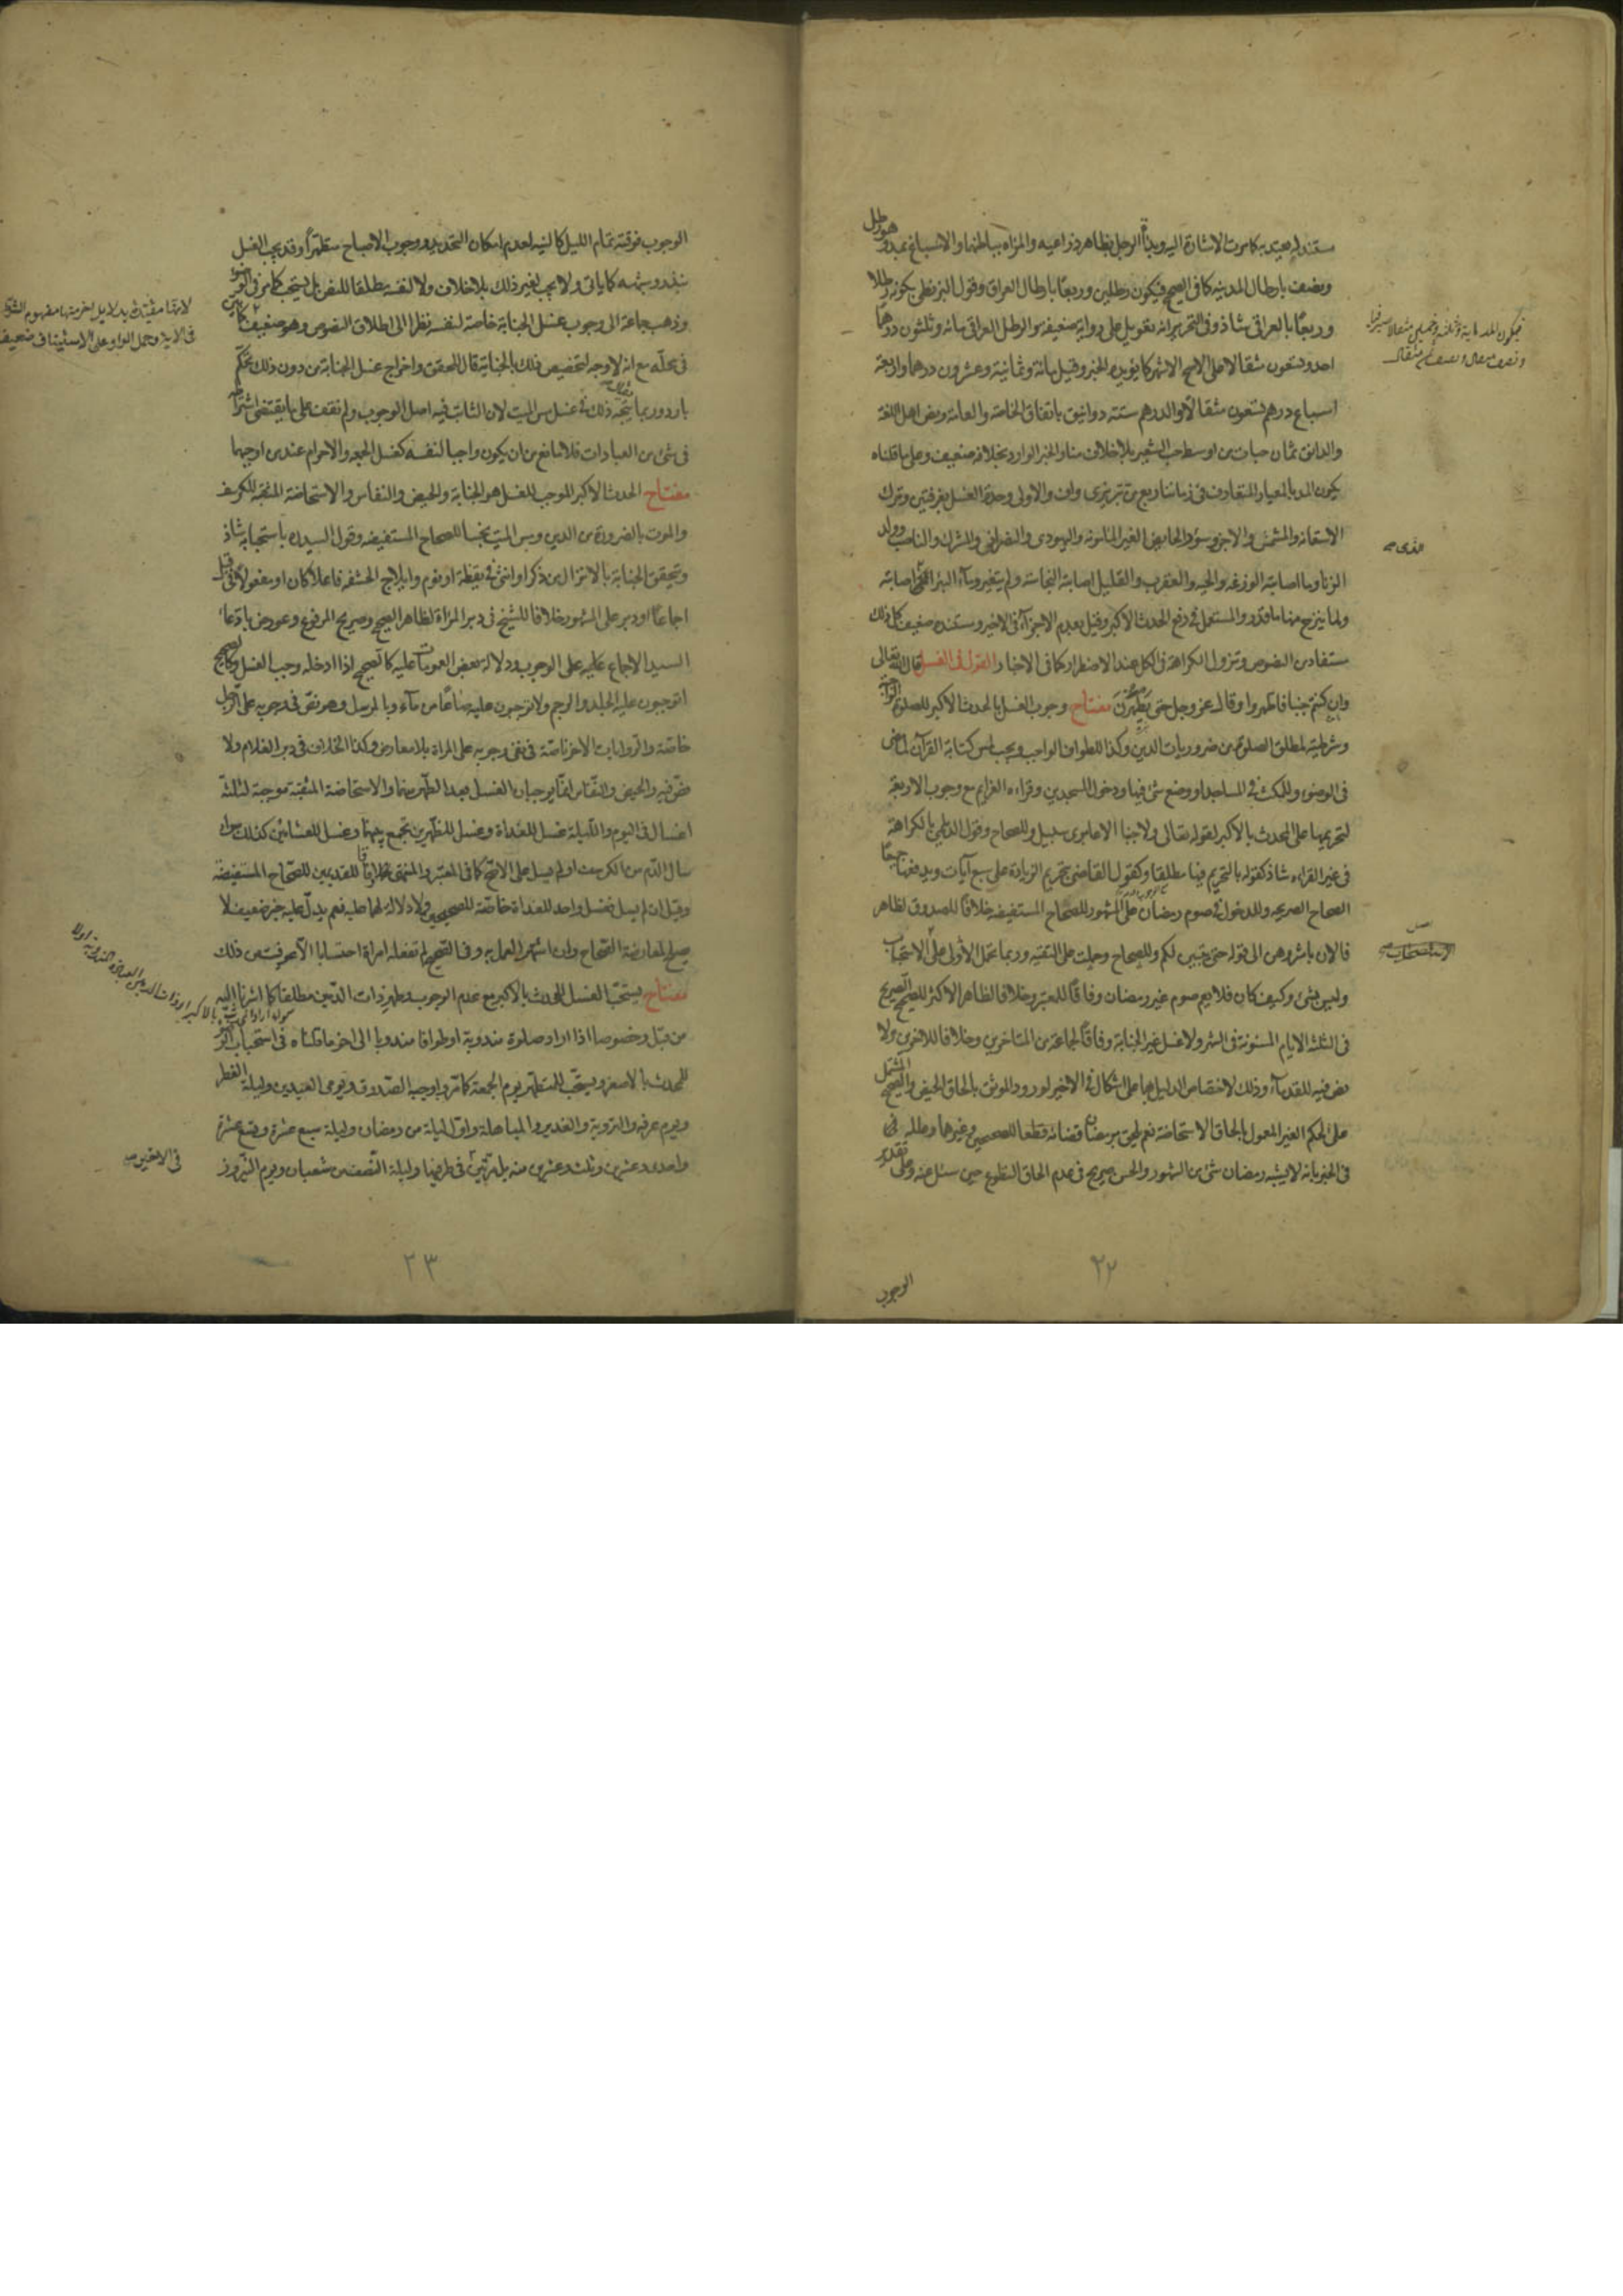 مستند له يعتد به كما مرت الاشارة اليه وبدأة الرجل بظاهر ذراعيه والمرأة بباطنهما والاسباغ بمد وهو رطل
ونصف بارطال المدينة كما فى الصحيح فيكون رطلين وربعا بارطال العراق وقول البزنطى بكونه رطلا
وربعا بالعراقى شاذ وفى التحرير انه تعويل على رواية ضعيفة والرطل العراقى مائة وثلثون درهما
احد وتسعون مثقالا على الاصح الاشهر كما يؤيده الخبر وقيل مائة وثمانية وعشرون درهما واربعة
اسباع درهم تسعون مثقالا والدرهم ستة دوانيق باتفاق الخاصة والعامة ونص اهل اللغة
والدانق ثمان حبات من اوسط حب الشعير بلا خلاف منا والخبر الوارد بخلافه ضعيف وعلى ما قلناه
يكون المد بالمعيار المتعارف فى زماننا ربع من تبريزى واف والاولى وحدة الغسل بغرفتين وترك
الاستعانة والمشمس والاجن وسؤر الحايض الغير المأمونة واليهودى والنصرانى والمشرك والناصب وولد
الزنا وما اصابته الوزغة والحية والعقرب والقليل اصابته النجاسة ولم يتغير وماء البئر اصابته
ولما ينزح منها ما قدر والمستعمل فى رفع الحدث الاكبر وقيل بعدم الاجزاء فى الاخير ومستنده ضعيف كل ذلك
مستفاد من النصوص وتزول الكراهة فى الكل عند الاضطرار كما فى الاخبار القول فى الغسل قال الله تعالى
وان كنتم جنبا فاطهروا وقال عز وجل حتى يطهرن مفتاح وجوب الغسل بالحدث الاكبر للصلوة الواجبة
وشرطيته لمطلق الصلوة من ضروريات الدين وكذا للطواف الواجب ويجب لمس كتابة القرآن لما مضى
فى الوضوء وللبث فى المساجد او وضع شئ فيها ودخول المسجدين وقراءة العزايم مع وجوب الاربعة
لتحريمها على المحدث بالاكبر لقوله تعالى ولا جنبا الا عابرى سبيل وللصحاح وقول الديلمى بالكراهة
فى غير القراءة شاذ كقوله بالتحريم فيها مطلقا وكقول القاضى بتحريم الزيادة على سبع آيات ويدفعها جميعا
الصحاح الصريحة وللدخول فى صوم رمضان على المشهور للصحاح المستفيضة خلافا للصدوق لظاهر
فالان باشروهن الى قوله حتى يتبين لكم وللصحاح وحملت على التقية وربما تحمل الأولى على الاستحباب
وليس بشئ وكيف كان فلا يعم صوم غير رمضان وفاقا للمعتبر وخلافا لظاهر الاكثر للصحيح الصريح
فى الثلثة الايام المسنونة فى الشهر ولا غسل غير الجنابة وفاقا لجماعة من المتاخرين وخلافا للاخرين ولا
نص فيه للقدماء وذلك لاختصاص الدليل بها على اشكال فى الاخير لورود الموثق بالحاق الحيض والصحيح المشتمل
على الحكم الغير المعمول بالحاق الاستحاضة نعم يلحق برمضان قضائه قطعا للصحيحين وغيرها وعلله فى
فى الخبر بانه لا يشبه رمضان شئ من الشهور والحسن صريح فى عدم الحاق التطوع حين سئل عنه وعلى تقدير
فيكون المد مائة وثلثة
الذى صح
٢٢
الوجوب
الوجوب فوقته تمام الليل كالنية لعدم امكان التحديد ووجوب الاصباح متطهرا وقد يجب الغسل
بنذر وشبهه كما ياتى ولا يجب لغير ذلك بلا خلاف ولا لنفسه مطلقا للنص بل يستحب كما مر فى الوضوء
وذهب جماعة الى وجوب غسل الجنابة خاصة لنفسه نظرا الى اطلاق النصوص وهو ضعيف كما بين
فى محله مع انه لا وجه لتخصيص ذلك بالجنابة قال المحقق واخراج غسل الجنابة من دون ذلك تحكم
بارد وربما يتجه ذلك فى غسل مس الميت لان الثابت فيه اصل الوجوب ولم نقف على ما يقتضى اشتراطه
فى شئ من العبادات فلا مانع من ان يكون واجبا لنفسه كغسل الجمعة والاحرام عند من اوجبهما
مفتاح الحدث الاكبر الموجب للغسل هو الجنابة والحيض والنفاس والاستحاضة المثقبة للكرسف
والموت بالضرورة من الدين ومس الميت نجسا للصحاح المستفيضة وقول السيد ره باستحبابه شاذ
وتتحقق الجنابة بالانزال من ذكر او انثى فى يقظة او نوم وايلاج الحشفة فاعلا كان او مفعولا فى قبل
اجماعا او دبر على المشهور خلافا للشيخ فى دبر المراة لظاهر الصحيح وصريح المرفوع وعورض بادعاء
السيد الاجماع عليه على الوجوب ودلالة بعض العمومات عليه كالصحيح اذا ادخله وجب الغسل وكالصحيح
اتوجبون عليه الجلد والرجم ولا توجبون عليه صاعا من ماء وبالمرسل وهو نص فى وجوبه على الرجل
خاصة والروايات الاخر ناصة فى نفى وجوبه على المراة بلا معارض وكذا الخلاف فى دبر الغلام ولا
نص فيه والحيض والنفاس انما يوجبان الغسل بعد الطهر منهما والاستحاضة المثقبة موجبة لثلثة
اغسال فى اليوم والليلة غسل للغداة وغسل للظهرين تجمع بينهما وغسل للعشائين كذلك سواء
سال الدم من الكرسف او لم يسل على الاصح كما فى المعتبر والمنتهى وفاقا للقديمين للصحاح المستفيضة
وقيل ان لم يسل فغسل واحد للغداة خاصة للصحيحين ولا دلالة لهما عليه نعم يدل عليه خبر ضعيف لا
يصلح لمعارضة الصحاح وان اشتهر العمل به وفى الصحيح لم تفعله امراة احتسابا الا عوفيت من ذلك
مفتاح يستحب الغسل للمحدث بالاكبر مع عدم الوجوب وطهر ذات الدمين مطلقا كما اشرنا اليه
من قبل وخصوصا اذا اراد صلوة مندوبة او طوافا مندوبا الى اخر ما قلناه فى استحباب الوضوء
للمحدث بالاصغر ويستحب للمتطهر يوم الجمعة كما مر واوجبه الصدوق ويومى العيدين وليلة الفطر
ويوم عرفة والتروية والغدير والمباهلة واول ليلة من رمضان وليلة سبع عشرة وتسع عشرة
واحدى وعشرين وثلث وعشرين منه بل مرتين فى طرفيها وليلة النصف من شعبان ويوم النيروز
لانها مقيدة بدلايل اخر منها مفهوم الشرط
فى الاية وحمل الواو على الاستيناف ضعيف
فى الاخيرين صح
٢٣